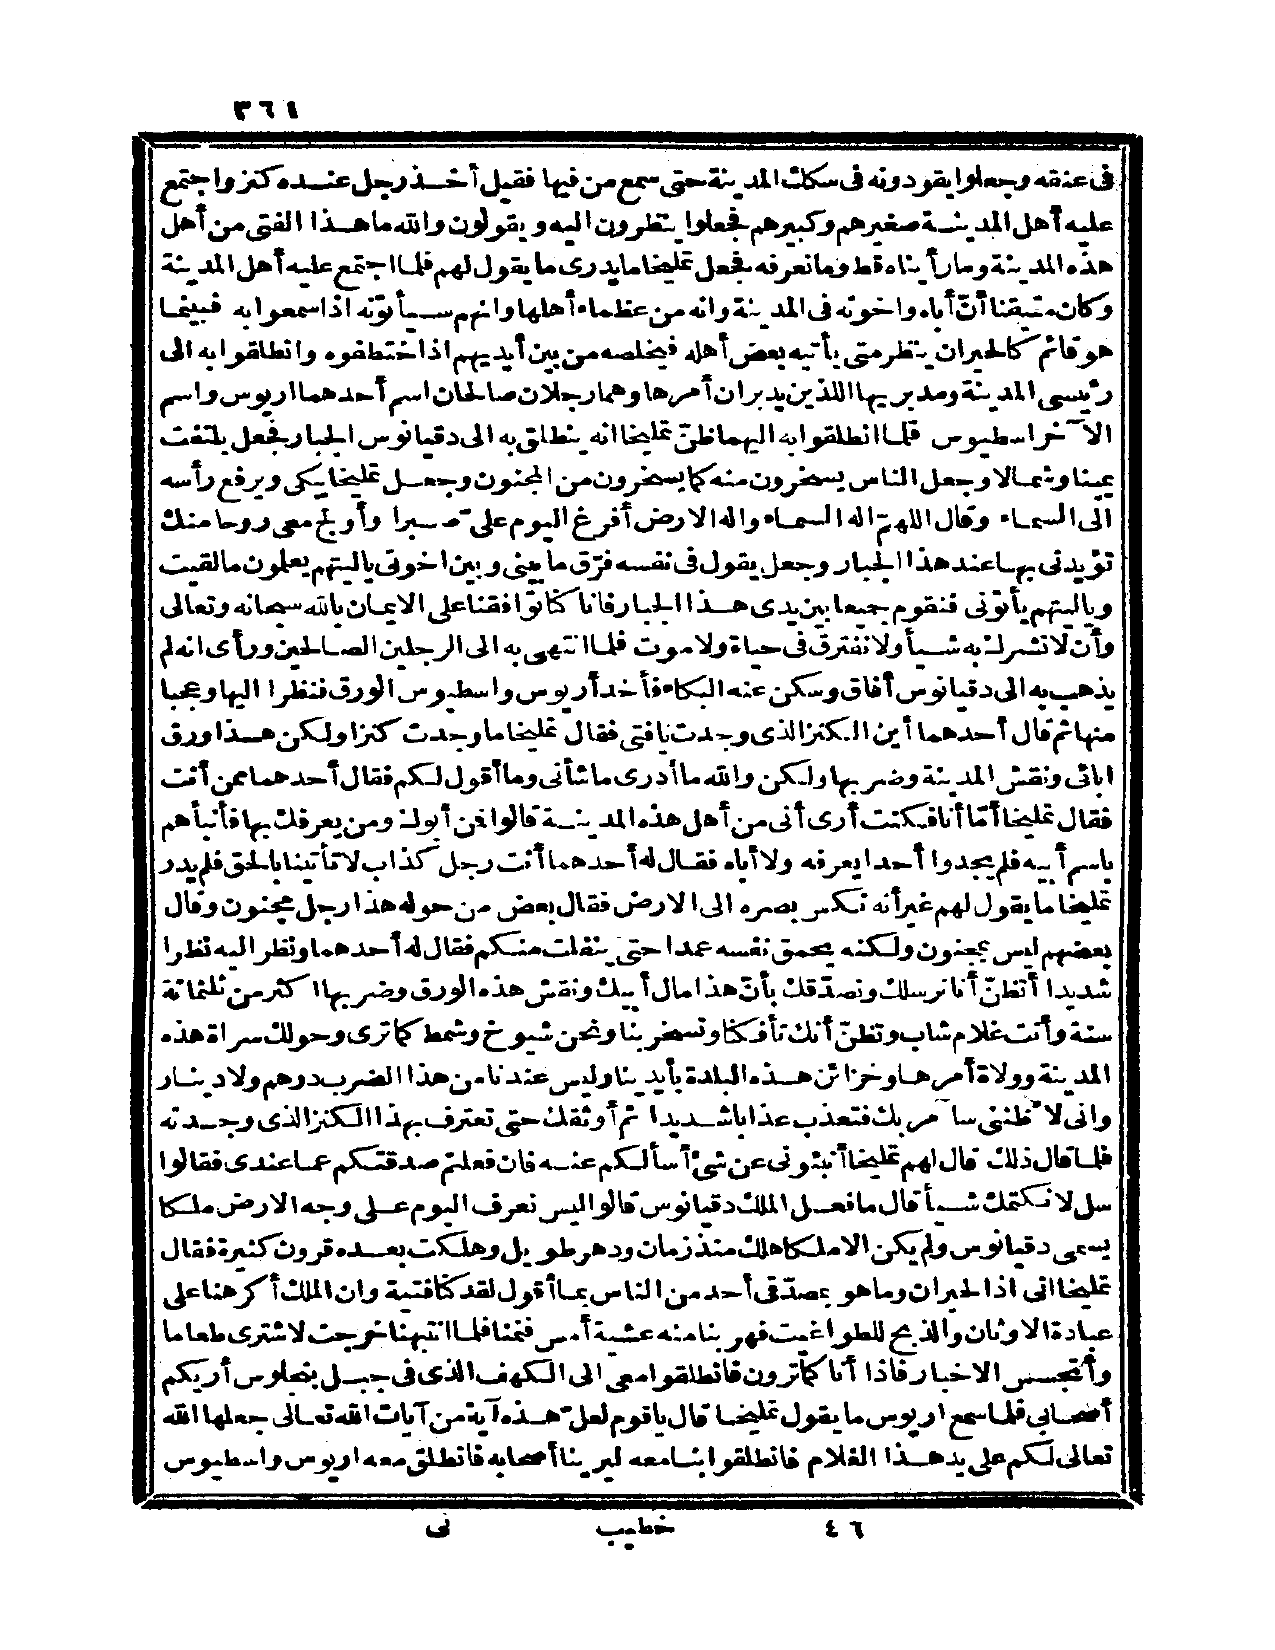 ٣٦١
فى عنقه وجعلوا يقودونه فى سكك المدينة حتى سمع من فيها فقيل أخذ رجل عنده كنز واجتمع
عليه أهل المدينة صغيرهم وكبيرهم فجعلوا ينظرون اليه ويقولون والله ما هذا الفتى من أهل
هذه المدينة وما رأيناه قط وما نعرفه فجعل تمليخا ما يدرى ما يقول لهم فلما اجتمع عليه أهل المدينة
وكان متيقنا أنّ أباه واخوته فى المدينة وانه من عظماء أهلها وانهم سيأتونه اذا سمعوا به فبينما
هو قائم كالحيران ينظر متى يأتيه بعض أهله فيخلصه من بين أيديهم اذ اختطفوه وانطلقوا به الى
رئيسى المدينة ومدبريها اللذين يدبران أمرها وهما رجلان صالحان اسم أحدهما اريوس واسم
الآخر اسطيوس فلما انطلقوا به اليهما ظنّ تمليخا انه ينطلق به الى دقيانوس الجبار فجعل يلتفت
يمينا وشمالا وجعل الناس يسخرون منه كما يسخرون من المجنون وجعل تمليخا يبكى ويرفع رأسه
الى السماء وقال اللهمّ اله السماء واله الارض أفرغ اليوم علىّ صبرا وأولج معى روحا منك
تؤيدنى بها عند هذا الجبار وجعل يقول فى نفسه فرّق ما بينى وبين اخوتى ياليتهم يعلمون ما لقيت
وياليتهم يأتونى فنقوم جميعا بين يدى هذا الجبار فانا كنا توافقنا على الايمان بالله سبحانه وتعالى
وأن لا نشرك به شيأ ولا نفترق فى حياة ولا موت فلما انتهى به الى الرجلين الصالحين ورأى انه لم
يذهب به الى دقيانوس أفاق وسكن عنه البكاء فأخذ أريوس واسطيوس الورق فنظرا اليها وعجبا
منها ثم قال أحدهما أين الكنز الذى وجدت يافتى فقال تمليخا ما وجدت كنزا ولكن هذا ورق
ابائى ونقش المدينة وضربها ولكن والله ما أدرى ما شأنى وما أقول لكم فقال أحدهما ممن أنت
فقال تمليخا أمّا أنا فكنت أرى أنى من أهل هذه المدينة قالوا فمن أبوك ومن يعرفك بها فأنبأهم
باسم أبيه فلم يجدوا أحدا يعرفه ولا أباه فقال له أحدهما أنت رجل كذاب لا تأتينا بالحق فلم يدر
تمليخا ما يقول لهم غير أنه نكس بصره الى الارض فقال بعض من حوله هذا رجل مجنون وقال
بعضهم ليس بمجنون ولكنه يحمق نفسه عمدا حتى ينفلت منكم فقال له أحدهما ونظر اليه نظرا
شديدا أتظنّ أنا نرسلك ونصدّقك بأنّ هذا مال أبيك ونقش هذه الورق وضربها أكثر من ثلثمائة
سنة وأنت غلام شاب وتظنّ أنك تأفكنا وتسخر بنا ونحن شيوخ وشمط كما ترى وحولك سراة هذه
المدينة وولاة أمرها وخزائن هذه البلدة بأيدينا وليس عندنا من هذا الضرب درهم ولا دينار
وانى لأظننى سآمر بك فتعذب عذابا شديدا ثم أوثقك حتى تعترف بهذا الكنز الذى وجدته
فلما قال ذلك قال لهم تمليخا أنبئونى عن شئ أسألكم عنه فان فعلتم صدقتكم عما عندى فقالوا
سل لا نكتمك شيأ قال ما فعل الملك دقيانوس قالوا ليس نعرف اليوم على وجه الارض ملكا
يسمى دقيانوس ولم يكن الا ملكا هلك منذ زمان ودهر طويل وهلكت بعده قرون كثيرة فقال
تمليخا انى اذا لحيران وما هو بمصدّقى أحد من الناس بما أقول لقد كنا فتية وان الملك أكرهنا على
عبادة الاوثان والذبح للطواغيت فهربنا منه عشية أمس فنمنا فلما انتبهنا خرجت لاشترى طعاما
وأتجسس الاخبار فاذا أنا كما ترون فانطلقوا معى الى الكهف الذى فى جبل ينجلوس أريكم
أصحابى فلما سمع اريوس ما يقول تمليخا قال يا قوم لعلّ هذه آية من آيات الله تعالى جعلها الله
تعالى لكم على يد هذا الغلام فانطلقوا بنا معه ليرينا أصحابه فانطلق معه اريوس واسطيوس
٤٦ خطيب نى